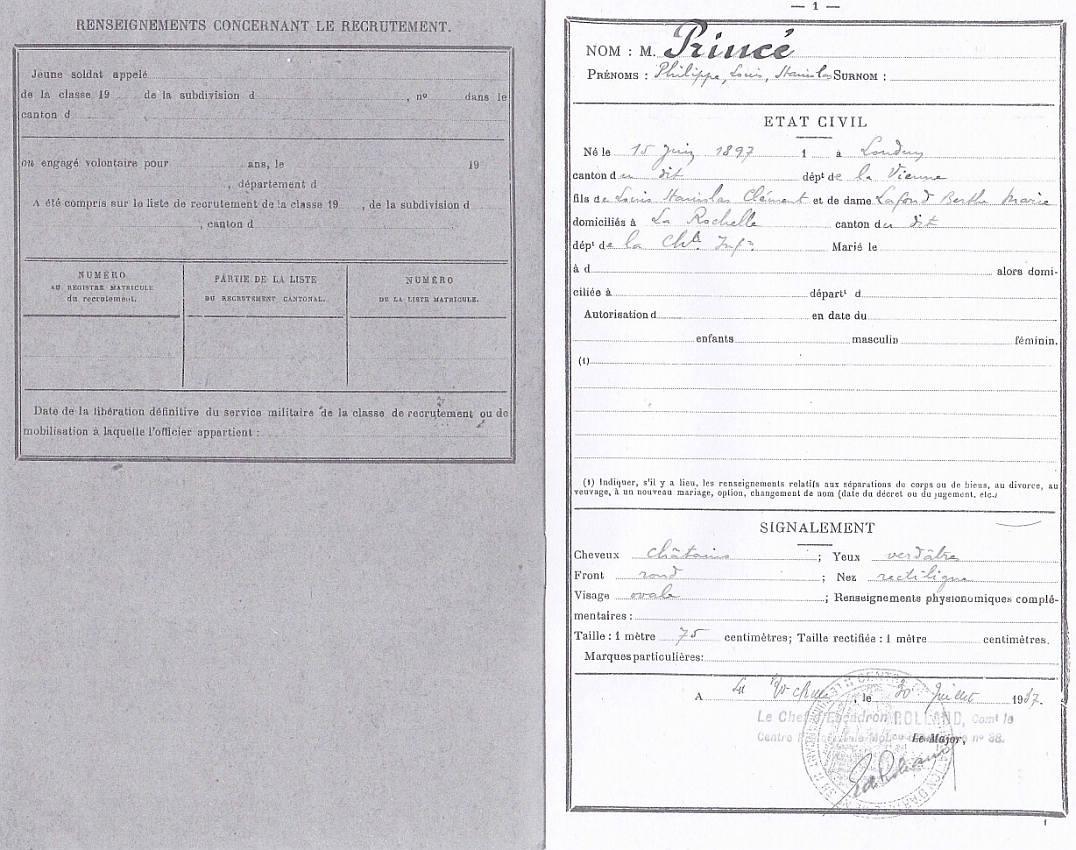 RENSEIGNEMENTS CONCERNANT LE RECRUTEMENT.
Jeune soldat appelé
de la classe 19 de la subdivision d , nº dans le
canton d
ou engagé volontaire pour ans, le 19
, département d
A été compris sur la liste de recrutement de la classe 19 , de la subdivision d
, canton d
NUMÉRO
AU REGISTRE MATRICULE
du recrutement.
PARTIE DE LA LISTE
DU RECRUTEMENT CANTONAL.
NUMÉRO
DE LA LISTE MATRICULE.
Date de la libération définitive du service militaire de la classe de recrutement ou de
mobilisation à laquelle l'officier appartient :
— 1 —
NOM : M. Princé
PRÉNOMS : Philippe, Louis, Stanislas SURNOM :
ETAT CIVIL
Né le 15 Juin 1897 à Loudun
canton du dit dépt de la Vienne
fils de Louis Stanislas Clément et de dame Lafond Berthe Marie
domiciliés à La Rochelle canton du dit
dépt de la Chte Infre Marié le
à d alors domi-
ciliée à départt d
Autorisation d en date du
enfants masculin féminin.
(1)
(1) Indiquer, s'il y a lieu, les renseignements relatifs aux séparations de corps ou de biens, au divorce, au
veuvage, à un nouveau mariage, option, changement de nom (date du décret ou du jugement, etc.)
SIGNALEMENT
Cheveux châtains ; Yeux verdâtre
Front rond ; Nez rectiligne
Visage ovale ; Renseignements physionomiques complé-
mentaires :
Taille : 1 mètre 75 centimètres; Taille rectifiée : 1 mètre centimètres.
Marques particulières:
A , le 30 Juillet 1937.
Le Chef d'Escadron ROLLAND, Comt le
Centre nº 38.
Le Major,